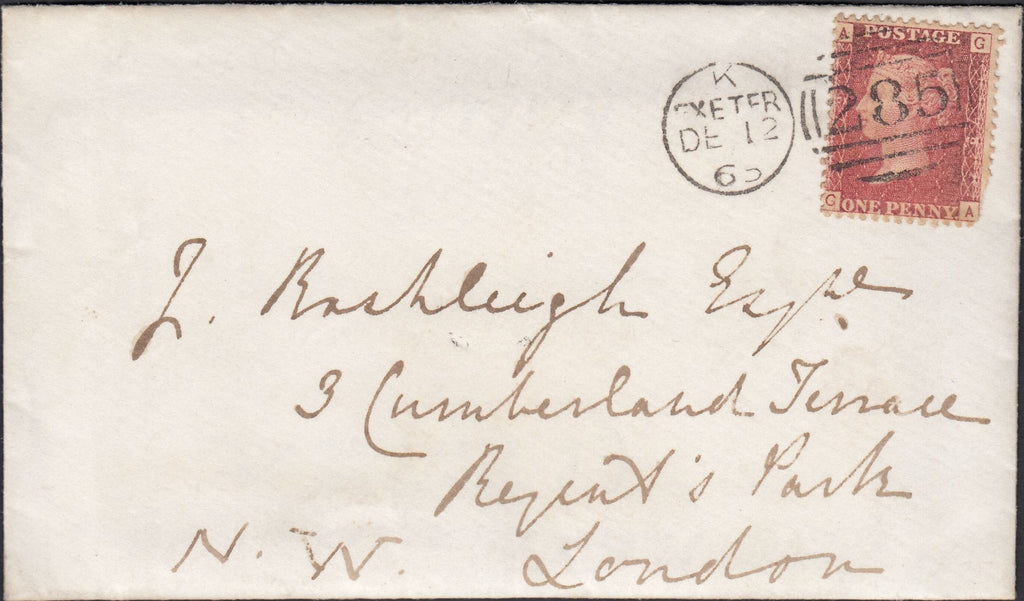 A POSTAGE G
K
EXETER
DE 12
65
285
G ONE PENNY A
J. Rashleigh Esqre
3 Cumberland Terrace
Regent's Park
N. W. London